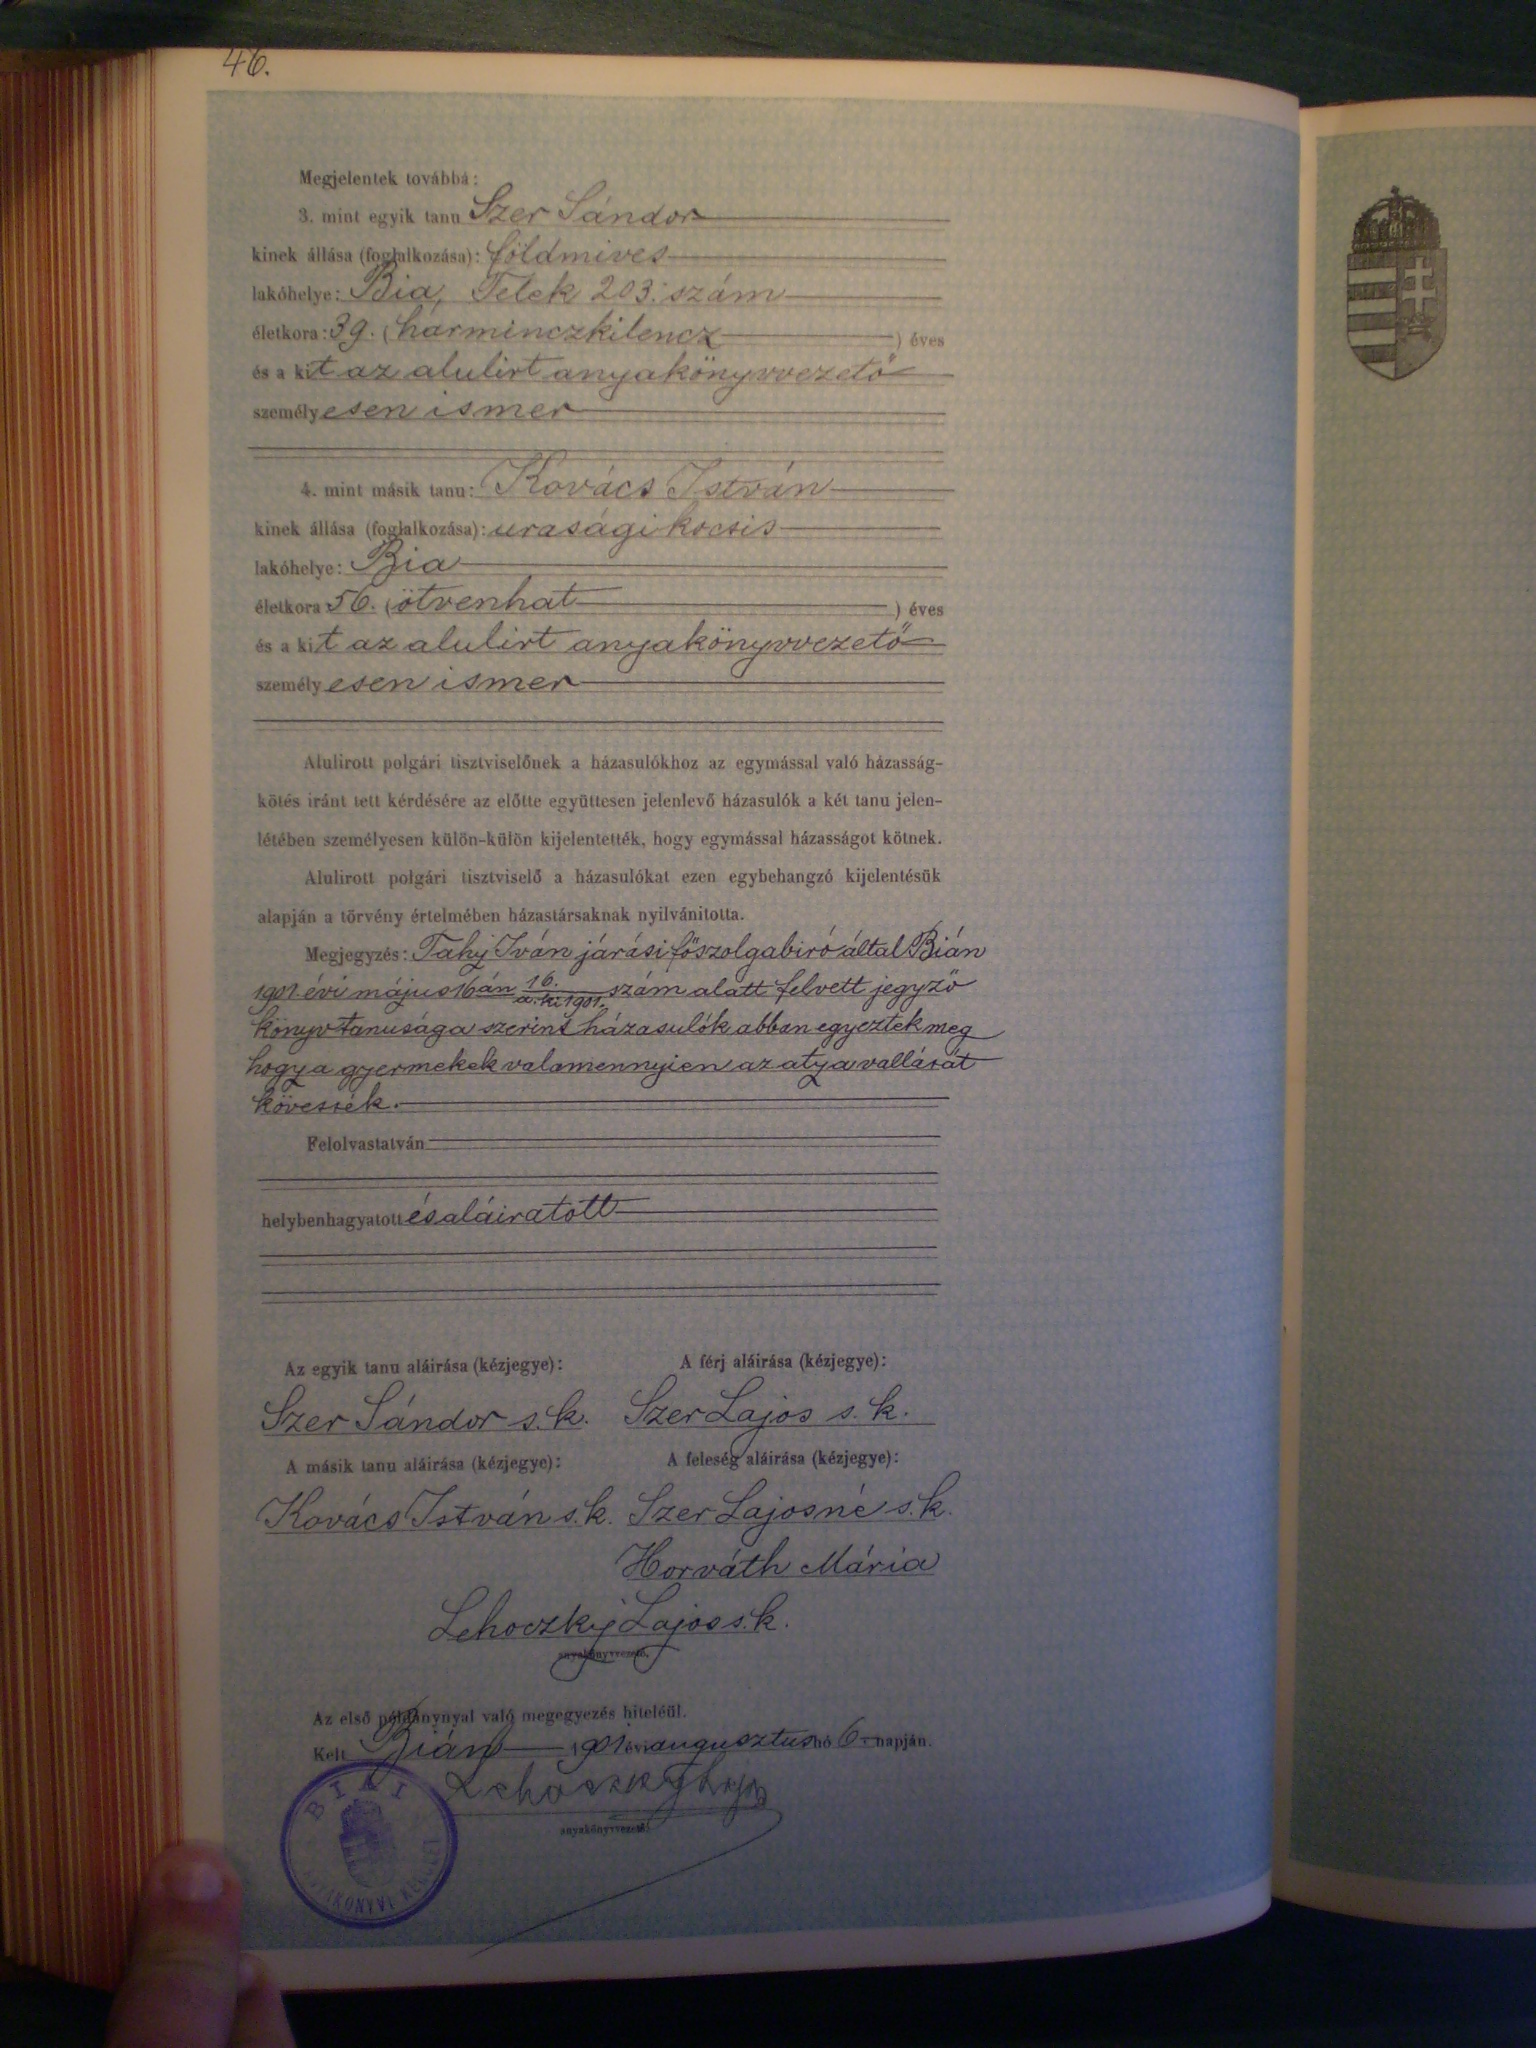 46.
Megjelentek továbbá:
3. mint egyik tanu Szer Sándor
kinek állása (foglalkozása): földmives
lakóhelye: Bia, Telek 203. szám
életkora: 39. (hárminczkilencz) éves
és a kit az alulirt anyakönyvvezető
személyesen ismer
4. mint másik tanu: Kovács István
kinek állása (foglalkozása): urasági kocsis
lakóhelye: Bia
életkora 56. (ötvenhat) éves
és a kit az alulirt anyakönyvvezető
személyesen ismer
Alulirott polgári tisztviselőnek a házasulókhoz az egymással való házasság-
kötés iránt tett kérdésére az előtte együttesen jelenlevő házasulók a két tanu jelen-
létében személyesen külön-külön kijelentették, hogy egymással házasságot kötnek.
Alulirott polgári tisztviselő a házasulókat ezen egybehangzó kijelentésük
alapján a törvény értelmében házastársaknak nyilvánitotta.
Megjegyzés: Tahy Iván járási főszolgabiró által Bián
1901. évi május 16án 16. / a. ki 1901. szám alatt felvett jegyző
könyv tanusága szerint házasulók abban egyeztek meg
hogy a gyermekek valamennyien az atya vallását
kövessék.
Felolvastatván
helybenhagyatott és aláiratott
Az egyik tanu aláirása (kézjegye): A férj aláirása (kézjegye):
Szer Sándor s.k. Szer Lajos s.k.
A másik tanu aláirása (kézjegye): A feleség aláirása (kézjegye):
Kovács István s.k. Szer Lajosné s.k.
Horváth Mária
Lehoczky Lajos s.k.
anyakönyvvezető.
Az első példánynyal való megegyezés hiteléül.
Kelt Bián 1901 évi augusztus hó 6. napján.
Lehoczky Lajos
anyakönyvvezető.
BIAI
ANYAKÖNYVI KERÜLET